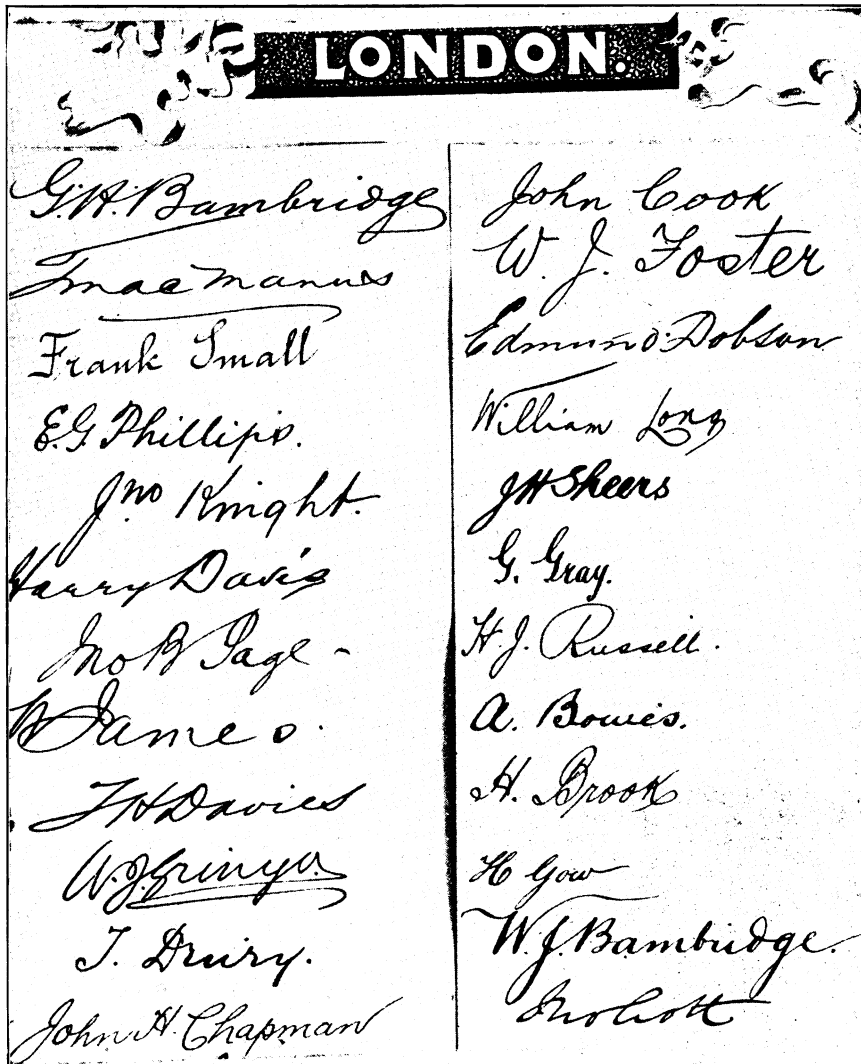 LONDON.
G. H. Bambridge
T MacManus
Frank Small
E. G. Phillips.
Jno Knight.
Harry Davis
Jno B Page -
W James.
T H Davies
W. J.
T. Drury.
John H. Chapman
John Cook
W. J. Foster
Edmund Dobson
William Long
J H Sheers
G. Gray.
H. J. Russell.
A. Bowes.
H. Brook
H Gow
W. J. Bambridge.
Jno